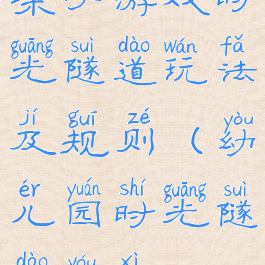 guāng suì dào wán fǎ
光隧道玩法
jí guī zé yòu
及规则（幼
ér yuán shí guāng suì
儿园时光隧
dào yóu xì